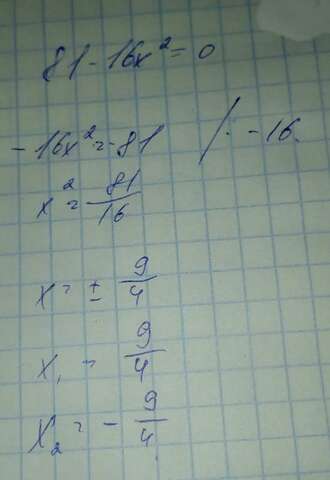 81 - 16x² = 0
-16x² = -81 /: -16.
x² = 81/16
x = ± 9/4
x₁ = 9/4
x₂ = - 9/4